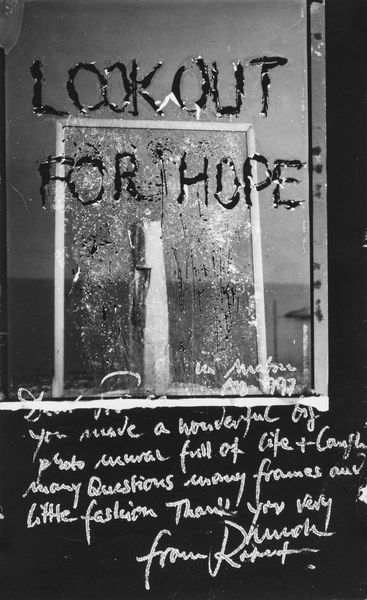 LOOK OUT
FOR HOPE
Aug. 1997
you make a wonderful big
photo mural full of life + laugh
many Questions many frames and
little fashion Thank you very
much
from Robert